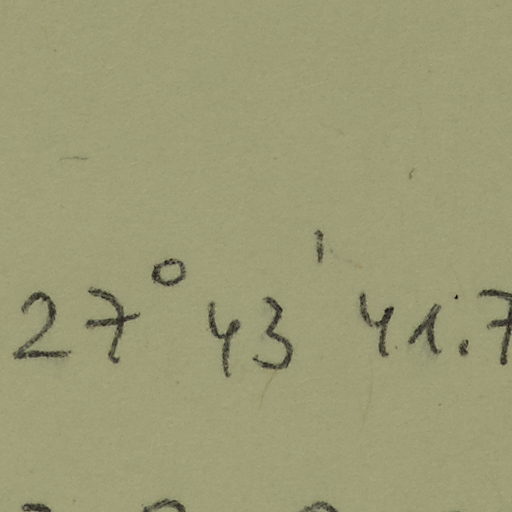 27° 43' 41.7